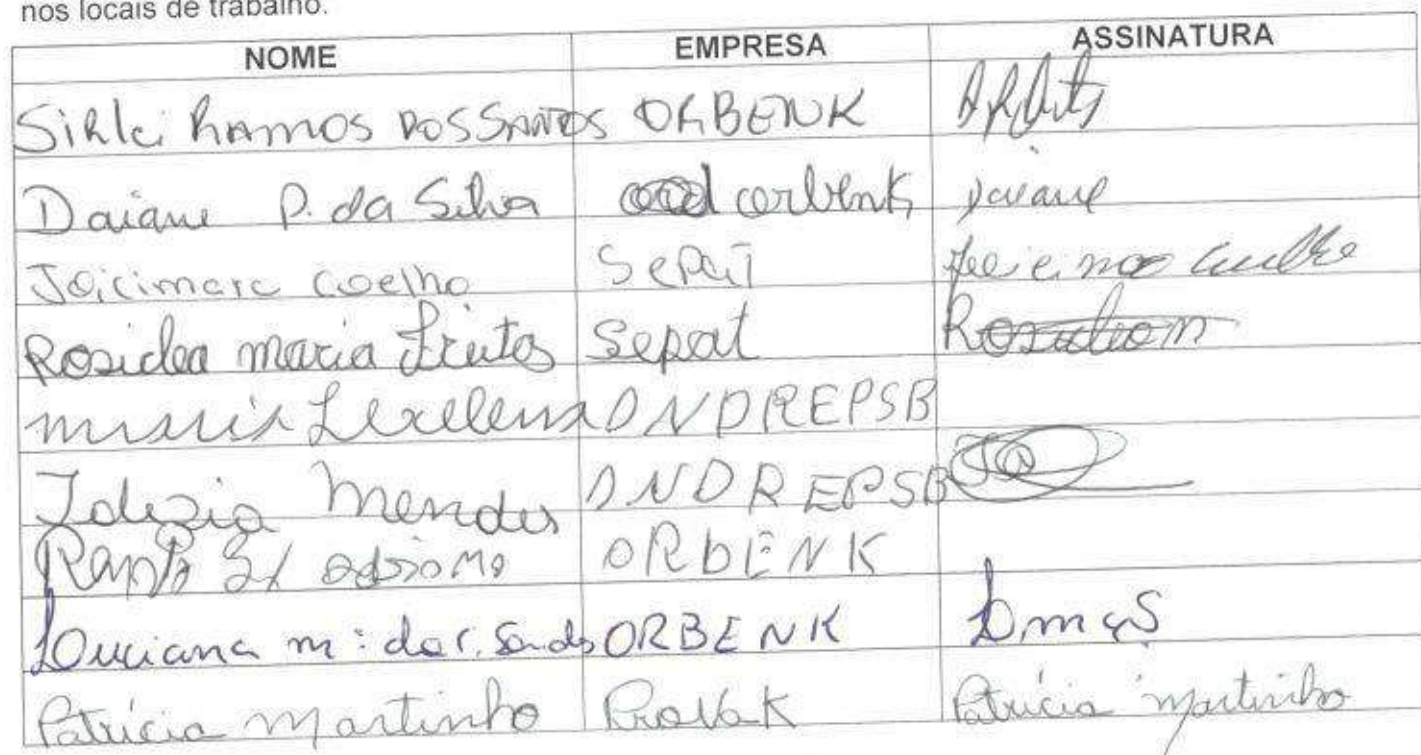 nos locais de trabalho.
NOME EMPRESA ASSINATURA
Sirlei Ramos dos Santos ORBENK
Daiane P. da Silva orbenk Daiane
Joicimara Coelho Sepat
Rosiclea maria Sepat
ANDREPSB
Mendes ANDREPSB
ORBENK
Luciana m: da C. Santos ORBENK
Patrícia Martinho ProVak Patrícia Martinho